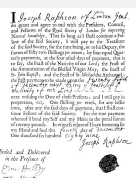 I Joseph Raphson of London Gent
do grant and agree to and with the President, Council,
and Fellows of the Royal Society of London for improving
Natural knowledge, That so long as I shall continue a Fel-
low of the said Society, I will pay to the Treasurer
of the said Society, for the time being, or to his Deputy, the
sum of fifty two Shillings per annum, by four equal Quar-
terly payments, at the four usual days of payment, that is
to say, the Feast of the Nativity of our Lord, the Feast of
the Annunciation of the Blessed Virgin Mary, the Feast of
St. John Baptist, and the Feast of St. Michael the Archangel:
the first payment to be made upon the
next ensuing the date of these Presents; and I will pay in
proportion, viz. One Shilling per week, for any lesser
time, after any the said days of payment, that I shall con-
tinue Fellow of the said Society. For the true payment
whereof I bind my self and my Heirs in the penal sum of
twenty pounds. In witness whereof I have hereunto set
my Hand and Seal this day of December
One thousand six hundred
Joseph Raphson
Sealed and Delivered
in the Presence of